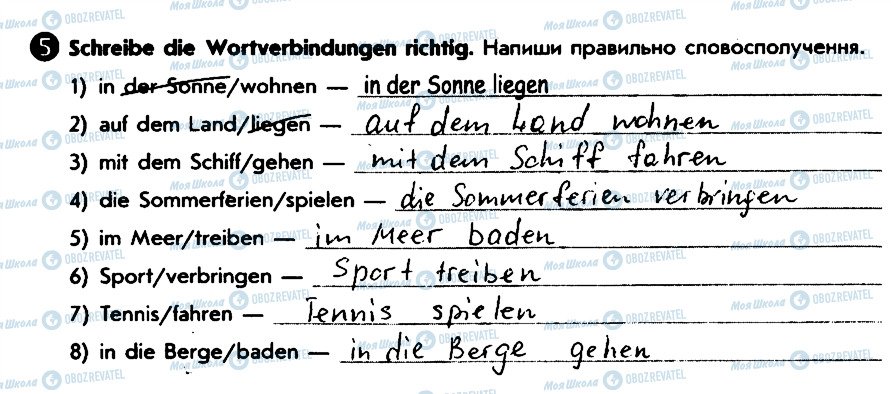 5 Schreibe die Wortverbindungen richtig. Напиши правильно словосполучення.
1) in der Sonne/wohnen — in der Sonne liegen
2) auf dem Land/liegen — auf dem Land wohnen
3) mit dem Schiff/gehen — mit dem Schiff fahren
4) die Sommerferien/spielen — die Sommerferien verbringen
5) im Meer/treiben — im Meer baden
6) Sport/verbringen — Sport treiben
7) Tennis/fahren — Tennis spielen
8) in die Berge/baden — in die Berge gehen